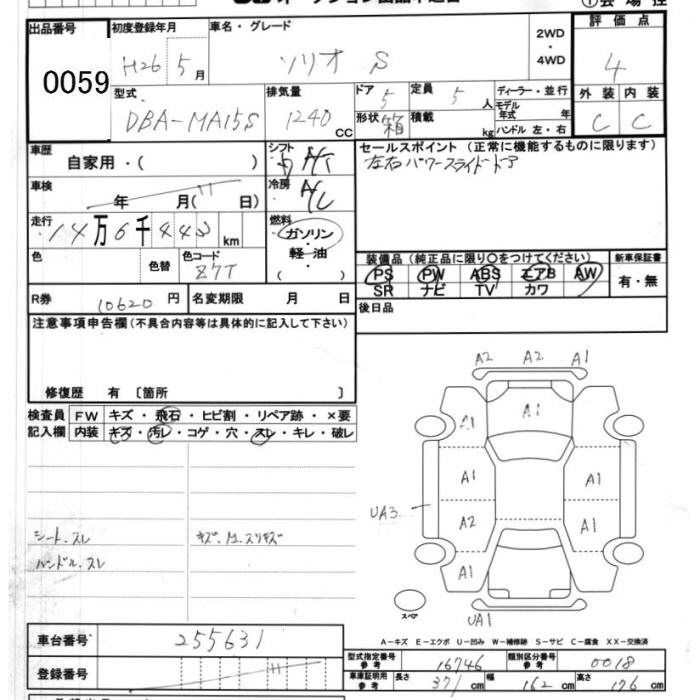 出品番号
0059
初度登録年月
H26 5月
車名・グレード
ソリオ S
2WD
・
4WD
評価点
4
外装 内装
C C
型式
DBA-MA15S
排気量
1240 CC
ドア
5
形状
箱
定員
5 人
積載
kg
ディーラー・並行
モデル年式 年
ハンドル 左・右
車歴
自家用・( )
シフト
A/T
セールスポイント (正常に機能するものに限ります)
左右パワースライドドア
車検
年 月( 日)
冷房
A/C
走行
14万6千443km
燃料
ガソリン
・
軽 油
( )
色
色替
色コード
Z7T
装備品 (純正品に限り○をつけてください)
PS PW ABS エアB AW
SR ナビ TV カワ
新車保証書
有・無
R券
10620円
名変期限 月 日
後日品
注意事項申告欄(不具合内容等は具体的に記入して下さい)
修復歴 有 〔箇所 〕
検査員
記入欄
FW キズ・飛石・ヒビ割・リペア跡・×要
内装 キズ・汚レ・コゲ・穴・スレ・キレ・破レ
シート、スレ
ハンドル、スレ
A2 A2 A1
A1 A1 A1
A1 A1
UA3 A2 A1
A1
スペア
UA1
A-キズ E-エクボ U-凹み W-補修跡 S-サビ C-腐食 XX-交換済
車台番号
255631
登録番号
型式指定番号
参考
16746
類別区分番号
参考
0018
車庫証明用
参考
長さ 371cm
幅 162cm
高さ 176cm